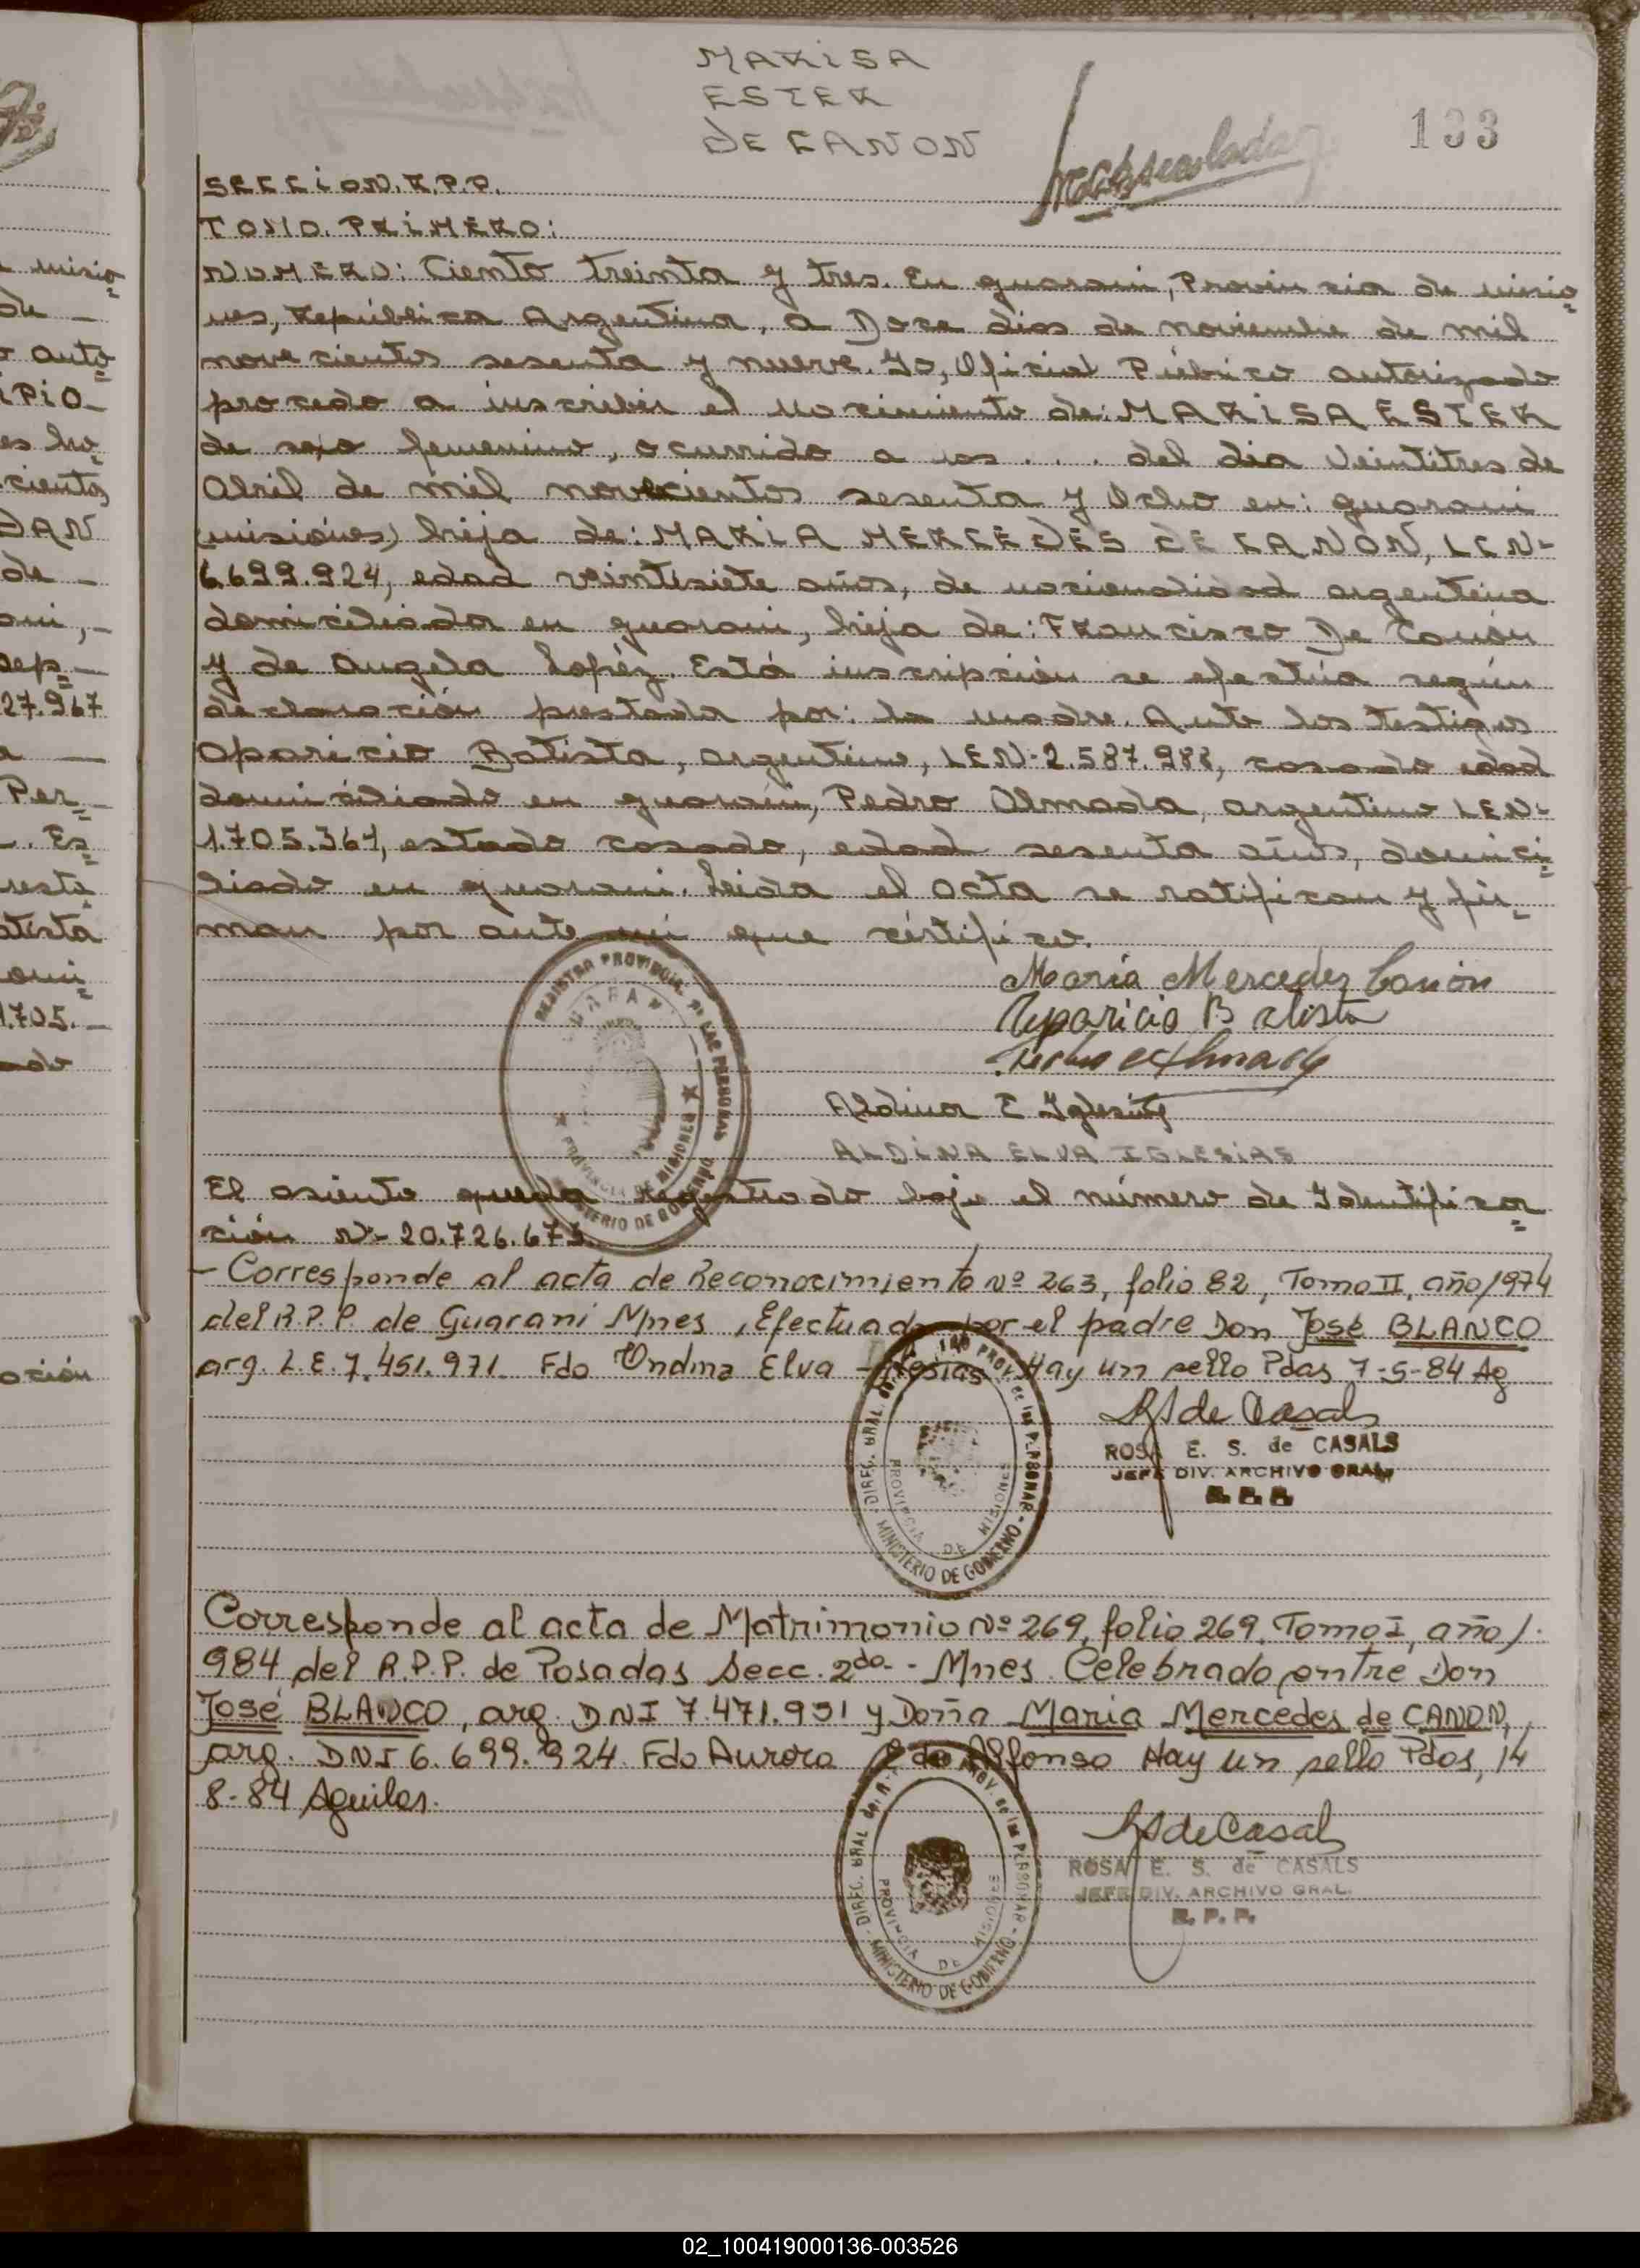 MARISA
ESTER
DE CANON
133
Matrsculada
SECCION. R.P.P.
TOMO. PRIMERO:
NUMERO: Ciento treinta y tres. En guarani, Provincia de misio=
nes, República Argentina, a Doce dias de noviembre de mil
novecientos sesenta y nueve. Yo, Oficial Público autorizado
procedo a inscribir el nacimiento de: MARISA ESTER
de sexo femenino, ocurrido a las . . . . del dia Veintitres de
Abril de mil novecientos sesenta y Ocho en: guarani
(misiónes) hija de: MARIA MERCEDES DE CANON, LCN-
6.699.924, edad veintisiete años, de nacionalidad argentina
domiciliada en guarani, hija de: FRancisco De Canón
y de Angela Lopéz. Está inscripción se efectúa según
declaración prestada por: la madre. Ante los testigos
Aparicio Batista, argentino, LEN-2.587.988, casado edad
domiciliado en guarani, Pedro Almada, argentino LEN-
1.705.367, estado casado, edad sesenta años, domici=
liado en guarani. Leida el acta se ratifican y fir=
man por ante mi que cértifico.
Maria Mercedes Canón
Aparicio Batista
Pedro Almada
Aldina E Iglesias
ALDINA ELVA IGLESIAS
REGISTRO PROVINCIAL DE LAS PERSONAS
PROVINCIA DE MISIONES
MINISTERIO DE GOBIERNO
El asiento queda registrado bajo el número de Identifica=
ción N°- 20.726.673.
- Corresponde al acta de Reconocimiento Nº 263, folio 82, Tomo II, año/1974
del R.P.P. de Guarani Mnes, Efectuado por el padre Don José BLANCO
arg. L.E. 7.451.971. Fdo Ondina Elva Iglesias Hay un sello Pdas 7-5-84 Ag
RSde Casals
ROSA E. S. de CASALS
JEFE DIV. ARCHIVO GRAL.
R. P. P.
PROVINCIA DE MISIONES
MINISTERIO DE GOBIERNO
Corresponde al acta de Matrimonio Nº 269, folio 269, Tomo I, año/.
984 del R.P.P. de Posadas Secc. 2do - Mnes. Celebrado entre Don
José BLANCO, arg. DNI 7.471.931 y Doña Maria Mercedes de CANON,
arg. DNI 6.699.924. Fdo Aurora de Alfonso Hay un sello Pdas, 14
8-84 Aguilar.
RSdeCasals
ROSA E. S. de CASALS
JEFE DIV. ARCHIVO GRAL.
R. P. P.
PROVINCIA DE MISIONES
MINISTERIO DE GOBIERNO
misio=
de -
auto=
IPIO-
es ho=
cientos
DAN
de -
ani, -
sep=
27.967
a -
Per=
. Es=
resta
atista
omi=
1.705.-
ado
ación
02_100419000136-003526